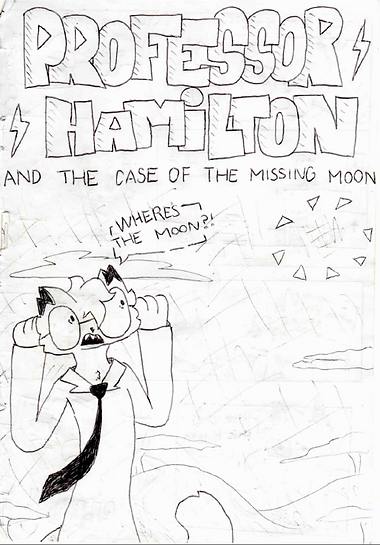 PROFESSOR
HAMiLTON
AND THE CASE OF THE MISSING MOON
WHERE'S
THE MOON?!